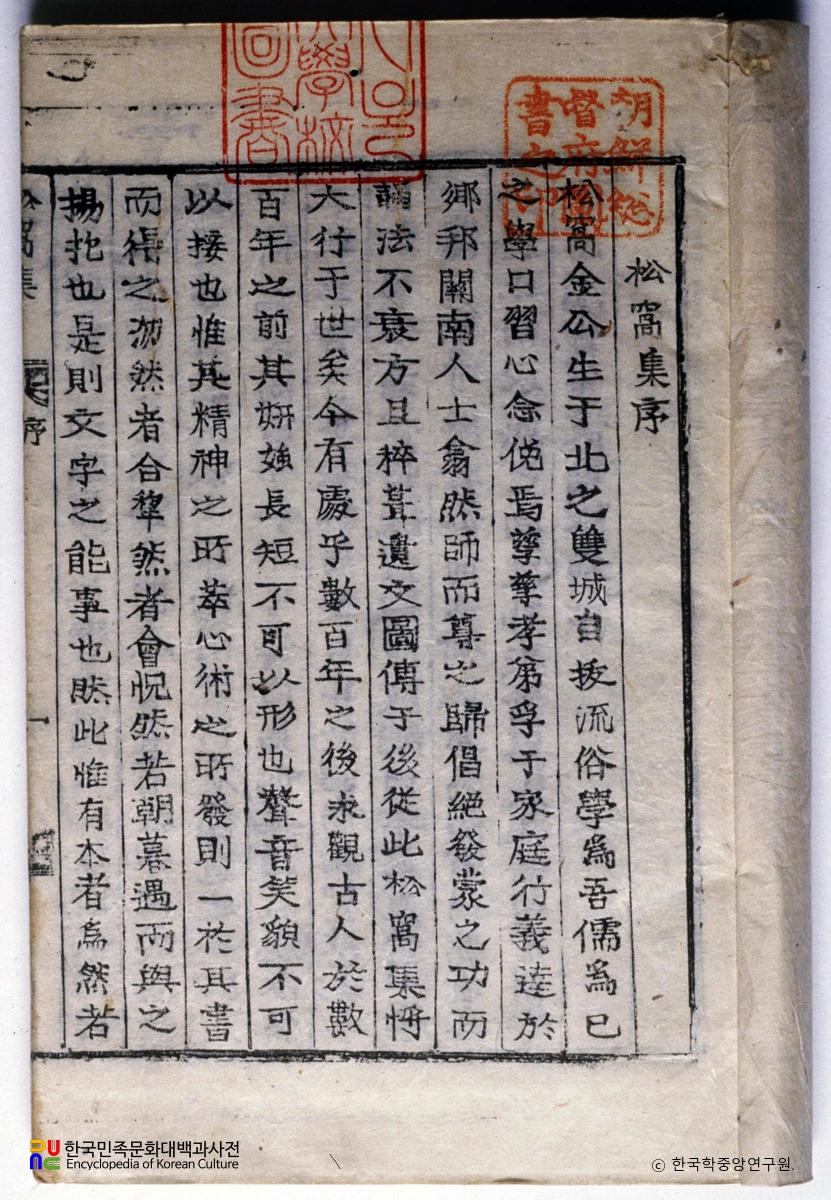 松窩集序
松窩金公生于北之雙城自拔流俗學爲吾儒爲已
之學口習心念俛焉孶孶孝弟孚于家庭行義達於
鄕邦關南人士翕然師而尊之歸倡絶發蒙之功而
誦法不衰方且梓其遺文圖傳于後從此松窩集將
大行于世矣今有處乎數百年之後求觀古人於數
百年之前其姸媸長短不可以形也聲音笑貌不可
以接也惟其精神之所萃心術之所發則一於其書
而得之沕然者合犂然者會怳然若朝暮遇而與之
揚扢也是則文字之能事也然此惟有本者爲然若
松窩集 序 一
朝鮮總督府圖書之印
學校圖書
한국민족문화대백과사전
Encyclopedia of Korean Culture
ⓒ 한국학중앙연구원